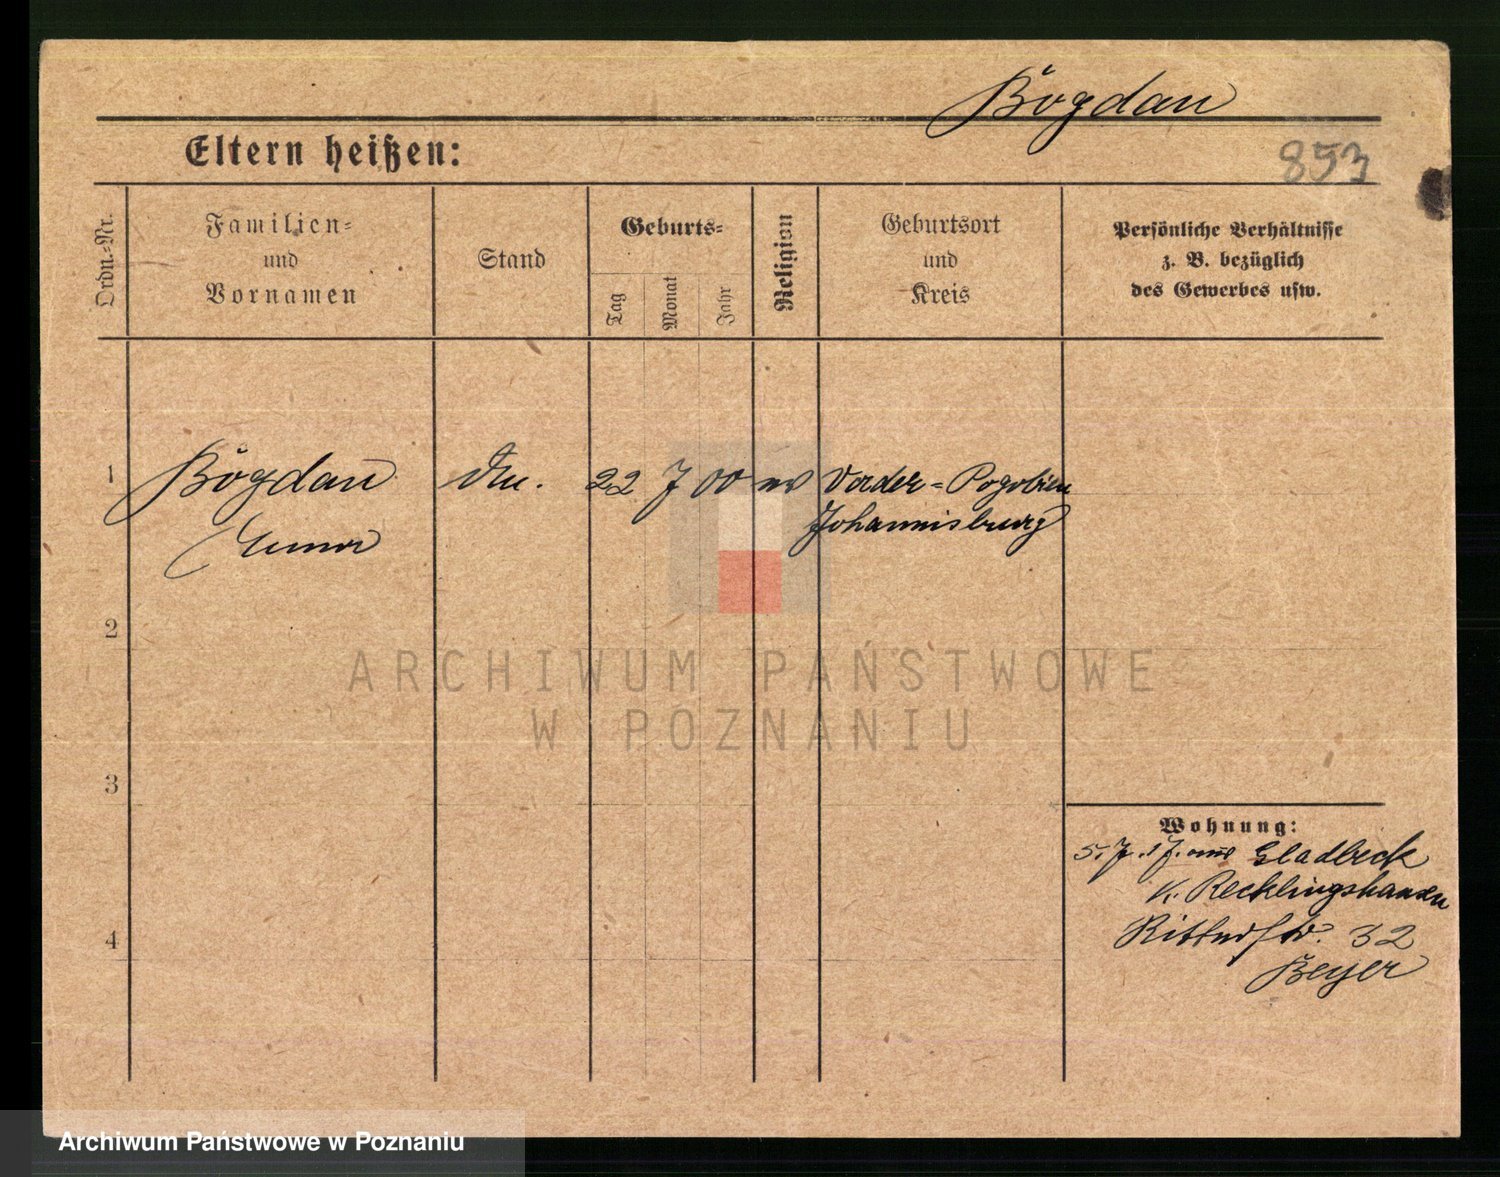 Bogdan
853
Eltern heißen:
Ordn.-Nr.
Familien-
und
Vornamen
Stand
Geburts-
Tag
Monat
Jahr
Religion
Geburtsort
und
Kreis
Persönliche Verhältnisse
z. B. bezüglich
des Gewerbes usw.
1
Bogdan
22 7 00 ev Vorder-Pogobien
Johannisburg
2
ARCHIWUM PAŃSTWOWE
W POZNANIU
3
Wohnung:
Gladbeck
K. Recklingshausen
32
Beyer
4
Archiwum Państwowe w Poznaniu